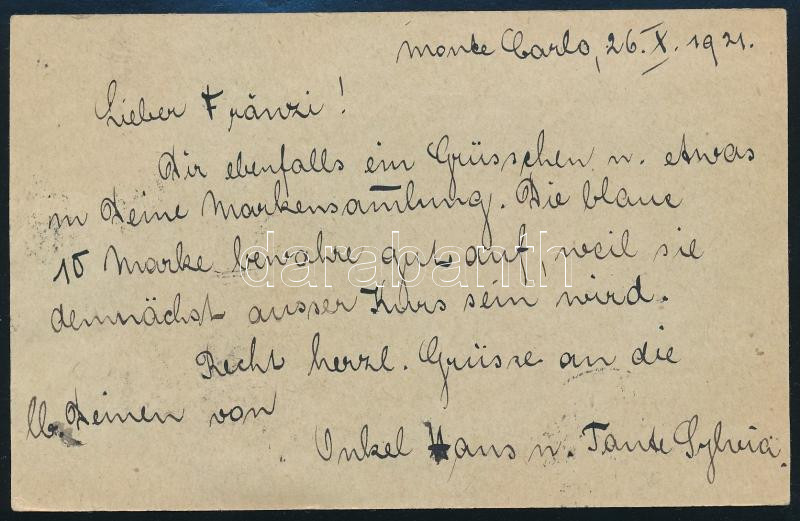 Monte Carlo, 26. X. 1921.
Lieber Fränzi!
Dir ebenfalls ein Grüsschen u. etwas
in Deine Markensamlung. Die blaue
15 Marke bewahre gut auf, weil sie
demnächst ausser Kurs sein wird.
Recht herzl. Grüsse an die
lb. Deinen von
Onkel Hans u. Tante Sylvia.
darabanth